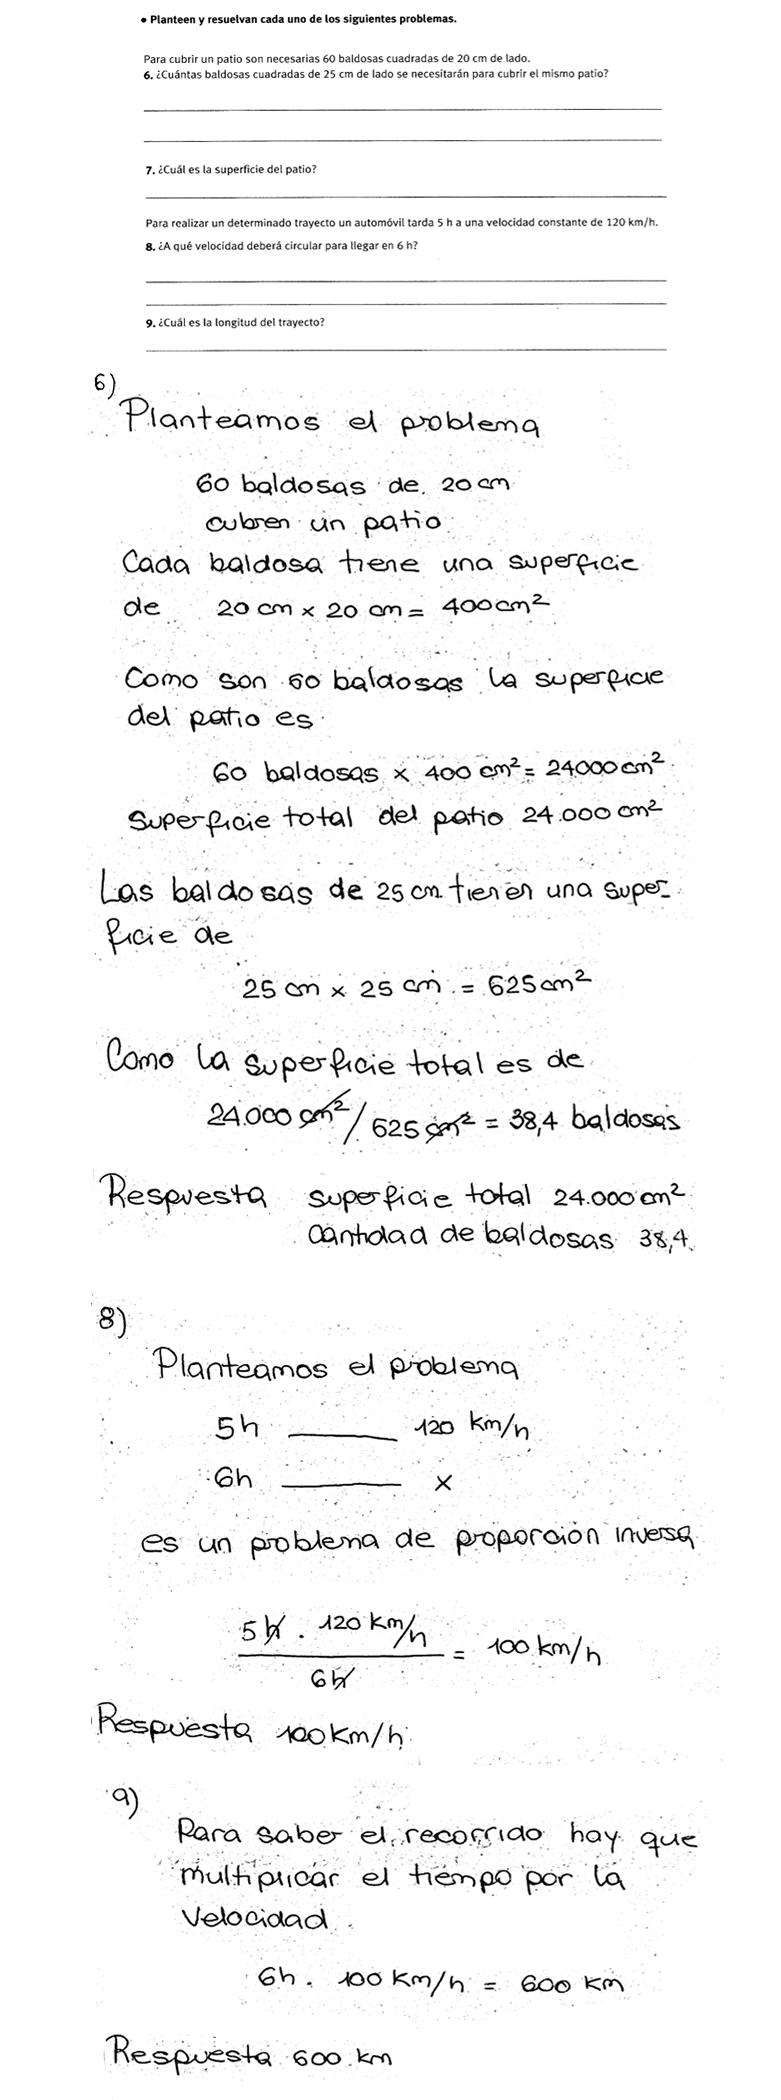 • Planteen y resuelvan cada uno de los siguientes problemas.
Para cubrir un patio son necesarias 60 baldosas cuadradas de 20 cm de lado.
6. ¿Cuántas baldosas cuadradas de 25 cm de lado se necesitarán para cubrir el mismo patio?
7. ¿Cuál es la superficie del patio?
Para realizar un determinado trayecto un automóvil tarda 5 h a una velocidad constante de 120 km/h.
8. ¿A qué velocidad deberá circular para llegar en 6 h?
9. ¿Cuál es la longitud del trayecto?
6)
Planteamos el problema
60 baldosas de 20 cm
cubren un patio
Cada baldosa tiene una superficie
de 20 cm x 20 cm = 400 cm²
Como son 60 baldosas la superficie
del patio es
60 baldosas x 400 cm² = 24000 cm²
Superficie total del patio 24.000 cm²
Las baldosas de 25 cm tienen una super-
ficie de
25 cm x 25 cm = 625 cm²
Como la superficie total es de
24.000 cm² / 625 cm² = 38,4 baldosas
Respuesta superficie total 24.000 cm²
cantidad de baldosas 38,4
8)
Planteamos el problema
5h ____ 120 km/h
6h ____ x
es un problema de proporción inversa
5h . 120 km/h
= 100 km/h
6h
Respuesta 100 km/h
9)
Para saber el recorrido hay que
multiplicar el tiempo por la
velocidad.
6h . 100 km/h = 600 km
Respuesta 600 km